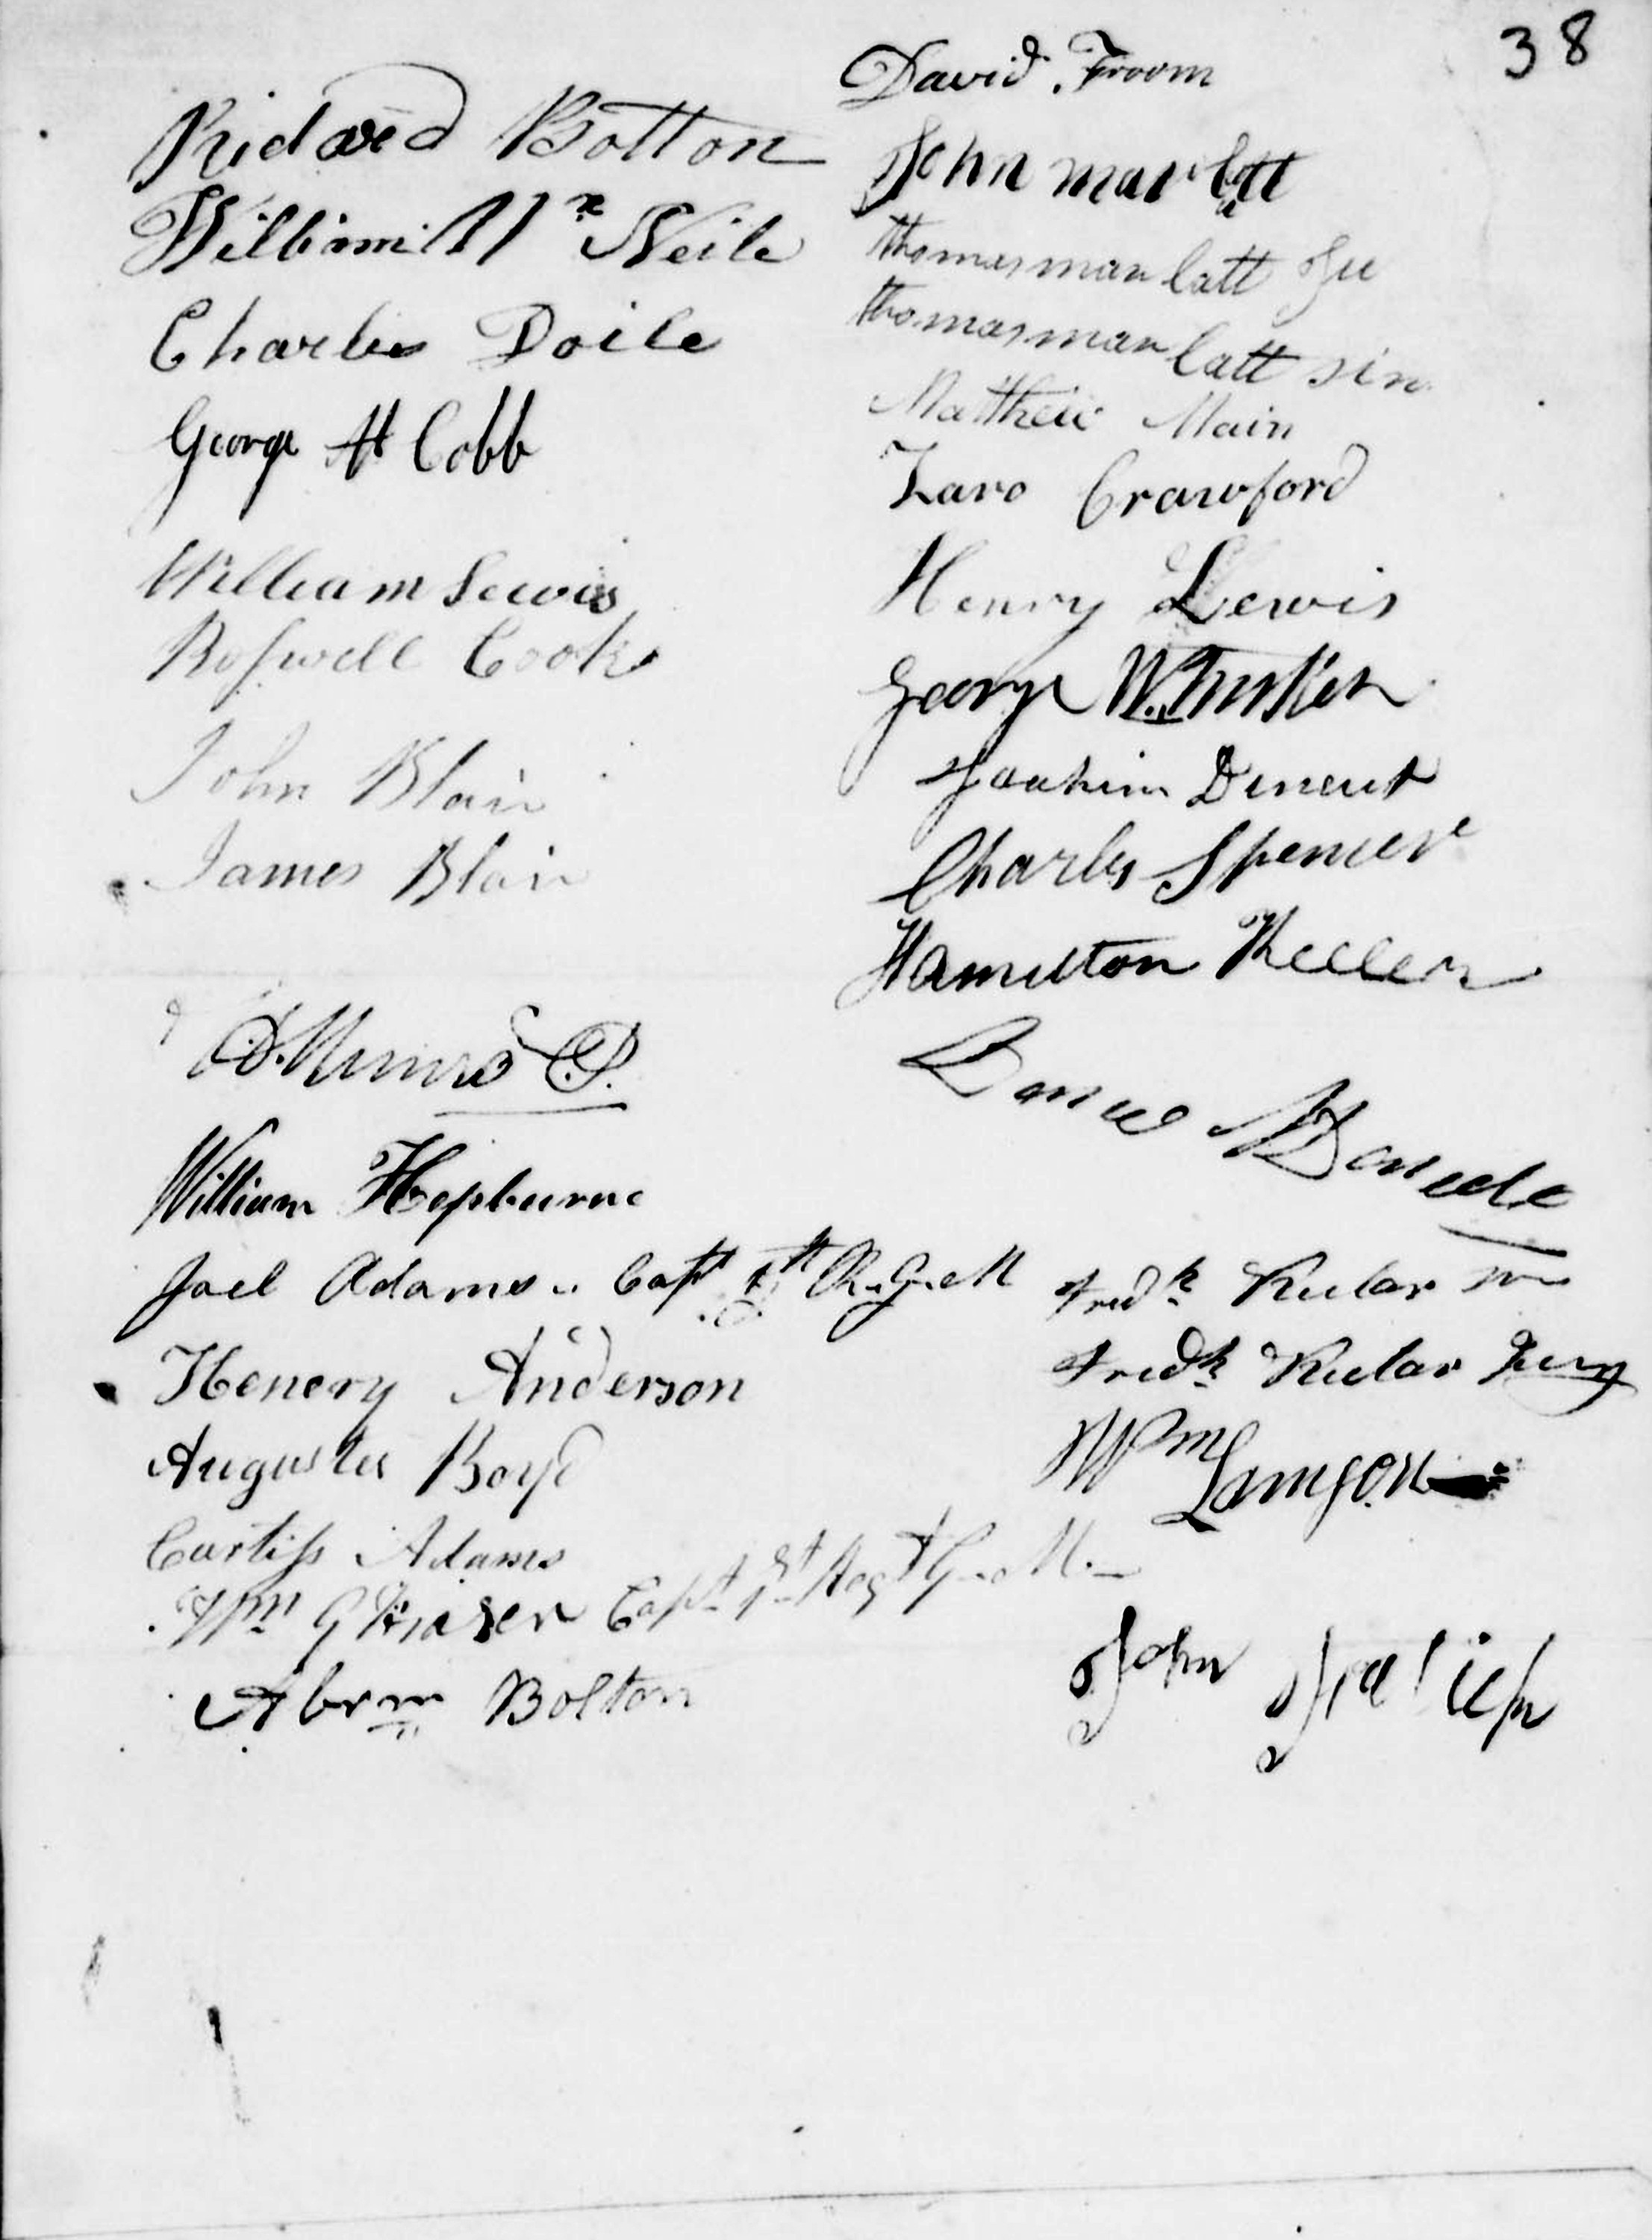 38
Richard Bolton
William Mc Neile
Charles Doile
George H Cobb
William Lewis
Roswell Cook
John Blair
James Blair
D. Munro
William Hepburne
Joel Adams Capt 2th R. G. M
Henery Anderson
Augustus Boyd
Curtiss Adams
Wm G Fraser Capt 1st Regt G. M.
Abrm Bolton
David Froom
John marlatt
thomas marlatt Ju
thomas marlatt sin
Matthew Main
Zaro Crawford
Henry Lewis
George W.
Joahim Deneut
Charles Spencer
Hamilton Keeler
McDonell
Fredk Keelar
Fredk Keelar
Wm Lamson
John